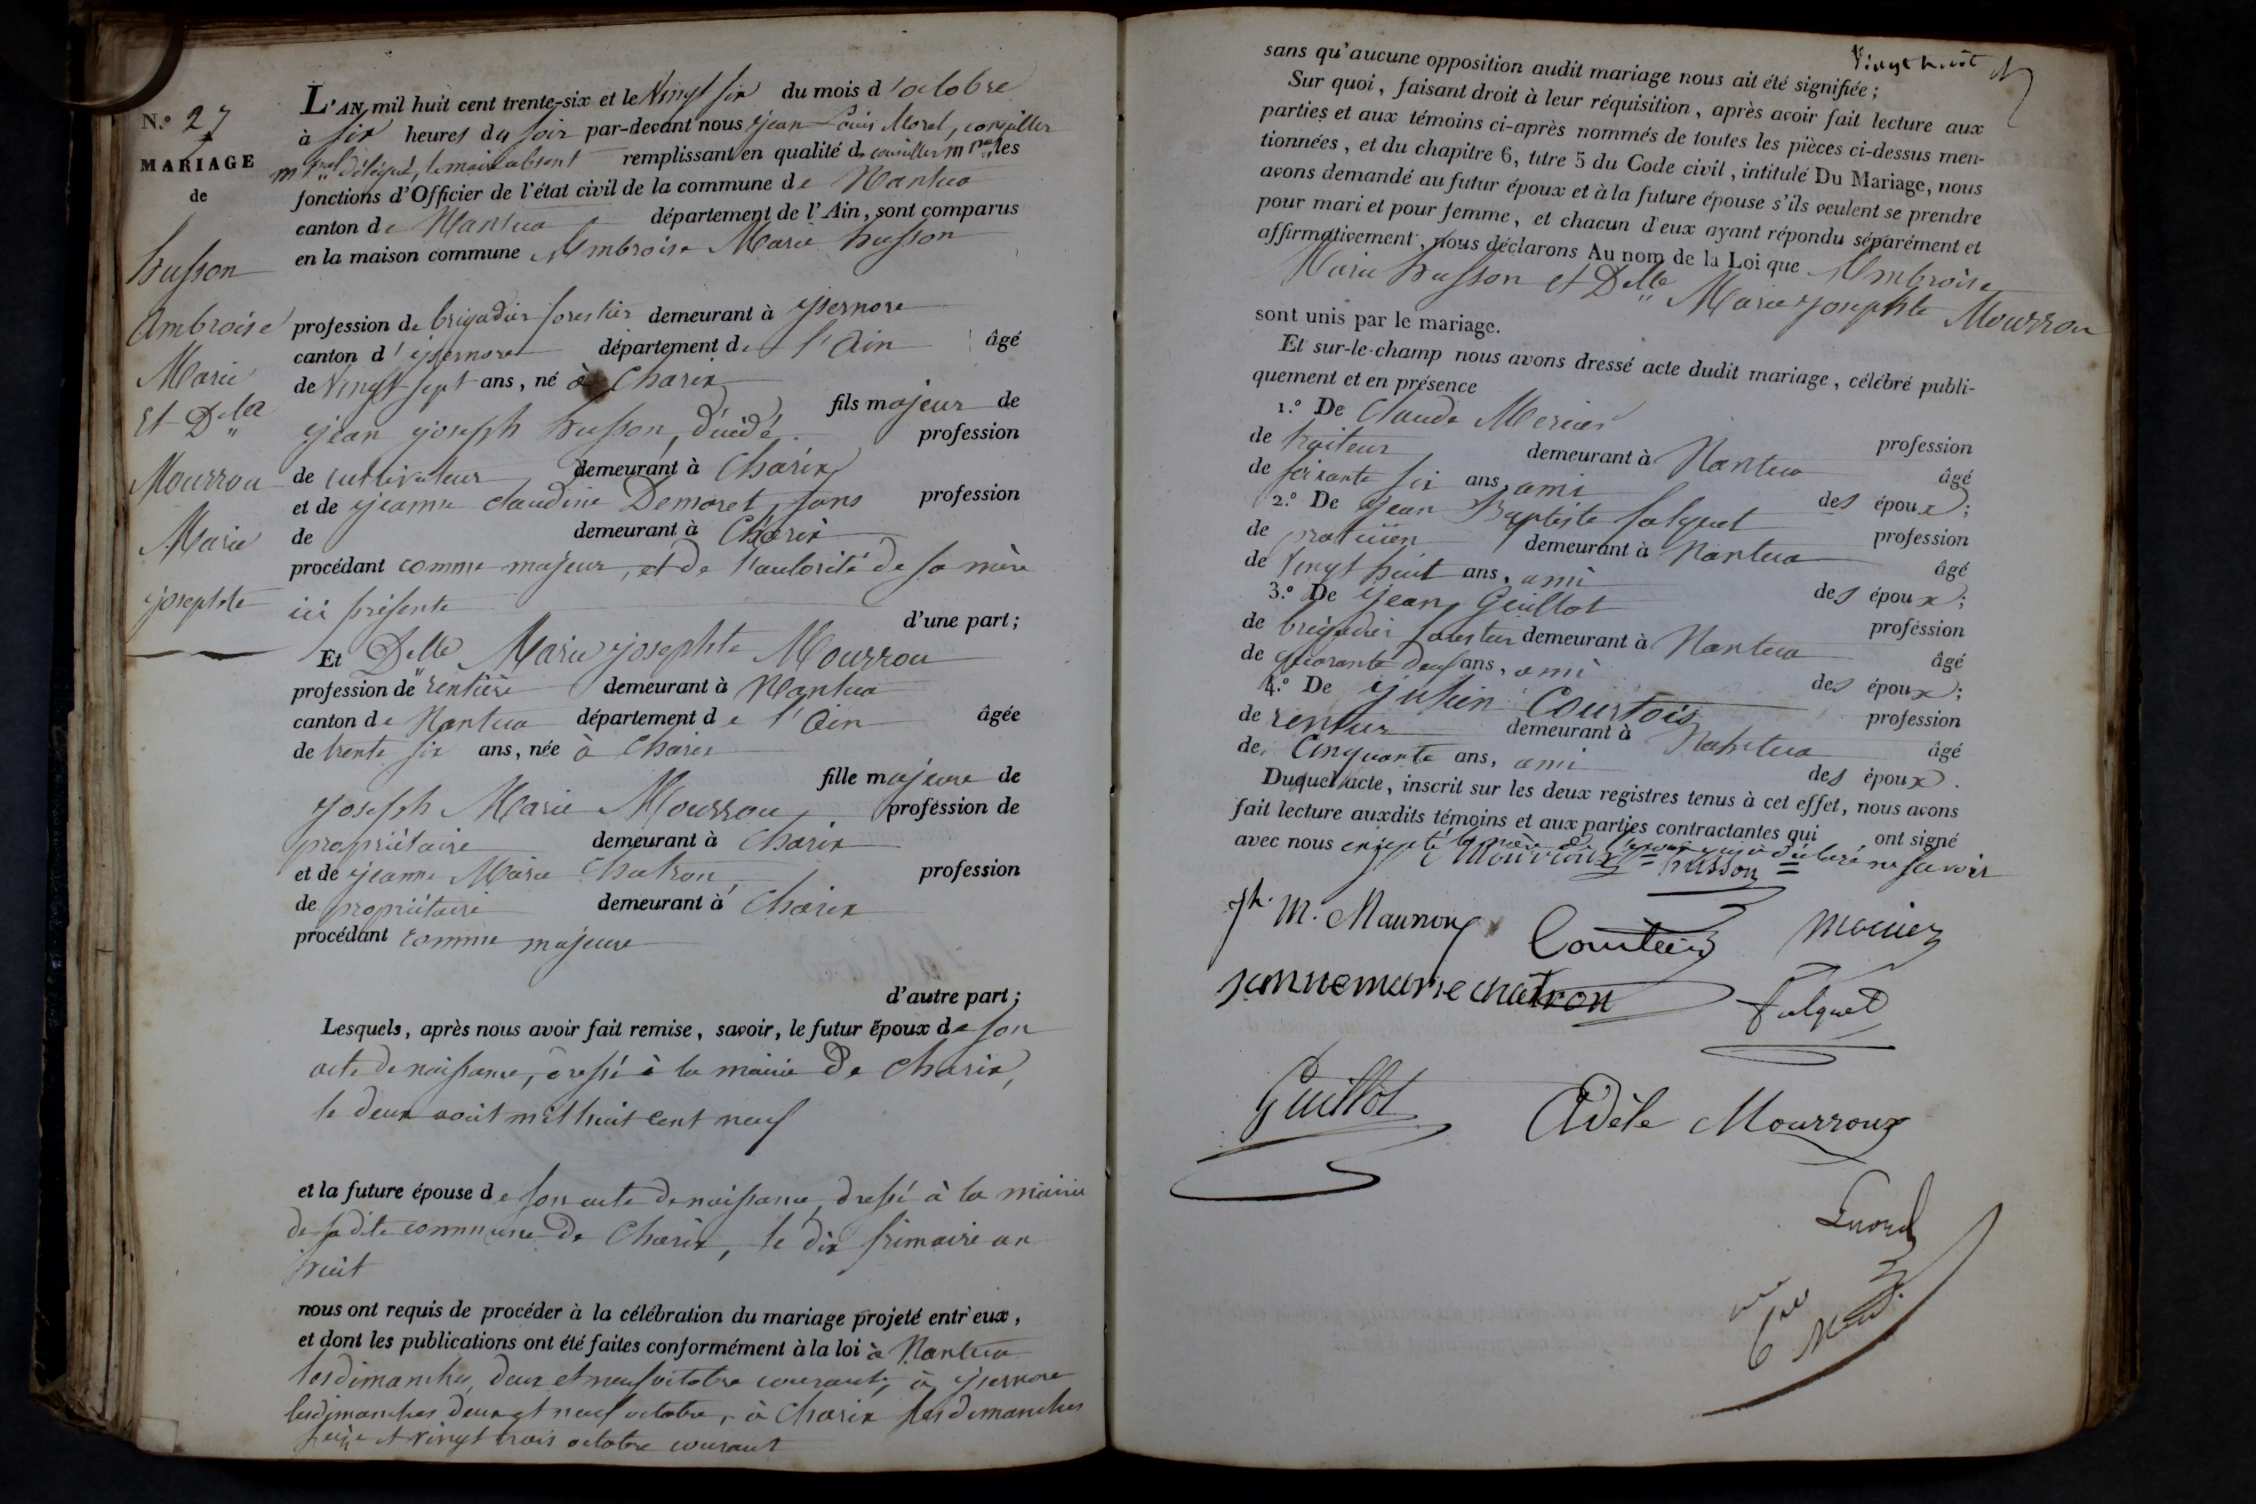 N.º 27
MARIAGE
de
husson
Ambroise
Marie
Et Delle
Mourrou
Marie
josephte
L'AN mil huit cent trente-six et le vingt six du mois d'octobre
à six heures du soir par-devant nous jean Louis Morel, conseiller
mpal délégué, le maire absent remplissant en qualité de conseiller mpal les
fonctions d'Officier de l'état civil de la commune de Nantua
canton de Nantua département de l'Ain, sont comparus
en la maison commune Ambroise Marie husson
profession de brigadier forestier demeurant à ysernore
canton d'ysernore département de l'Ain âgé
de vingt sept ans, né à Charix
fils majeur de
jean joseph husson, décédé profession
de cultivateur demeurant à Charix
et de jeanne claudine Demoret, sans profession
de demeurant à Charix
procédant comme majeur, et de l'autorité de sa mère
ici présente
d'une part;
Et Delle Marie josephte Mourrou
profession de rentière demeurant à Nantua
canton de Nantua département de l'Ain âgée
de trente six ans, née à Charix
fille majeure de
joseph Marie Mourrou profession de
propriétaire demeurant à Charix
et de jeanne Marie Chatron, profession
de propriétaire demeurant à Charix
procédant comme majeure
d'autre part;
Lesquels, après nous avoir fait remise, savoir, le futur époux de son
acte de naissance, dressé à la mairie de Charix,
le deux août mil huit cent neuf
et la future épouse de son acte de naissance, dressé à la mairie
de sa dite commune de Charix, le dix frimaire an
huit
nous ont requis de procéder à la célébration du mariage projeté entr'eux,
et dont les publications ont été faites conformément à la loi à Nantua
les dimanches, deux et neuf octobre courant, à ysernore
les dimanches deux et neuf octobre, à Charix les dimanches
seize et vingt trois octobre courant
vingt huit
sans qu'aucune opposition audit mariage nous ait été signifiée;
Sur quoi, faisant droit à leur réquisition, après avoir fait lecture aux
parties et aux témoins ci-après nommés de toutes les pièces ci-dessus men-
tionnées, et du chapitre 6, titre 5 du Code civil, intitulé Du Mariage, nous
avons demandé au futur époux et à la future épouse s'ils veulent se prendre
pour mari et pour femme, et chacun d'eux ayant répondu séparément et
affirmativement, nous déclarons Au nom de la Loi que Ambroise
Marie husson et Delle Marie josephte Mourrou
sont unis par le mariage.
Et sur-le-champ nous avons dressé acte dudit mariage, célébré publi-
quement et en présence
1.º De Claude Mercier profession
de traiteur demeurant à Nantua âgé
de soixante six ans, ami des époux;
2.º De jean Baptiste falquet profession
de praticien demeurant à Nantua âgé
de vingt huit ans, ami des époux;
3.º De jean Guillot profession
de brigadier forestier demeurant à Nantua âgé
de quarante deux ans, ami des époux;
4.º De julien Courtois profession
de rentier demeurant à Nantua âgé
de cinquante ans, ami des époux.
Duquel acte, inscrit sur les deux registres tenus à cet effet, nous avons
fait lecture auxdits témoins et aux parties contractantes qui ont signé
avec nous excepté la mère de l'époux qui a déclaré ne savoir
husson
jh. m. Mauroux Mercier
janne marie chatron falquet
Guillot Adèle Mourroux